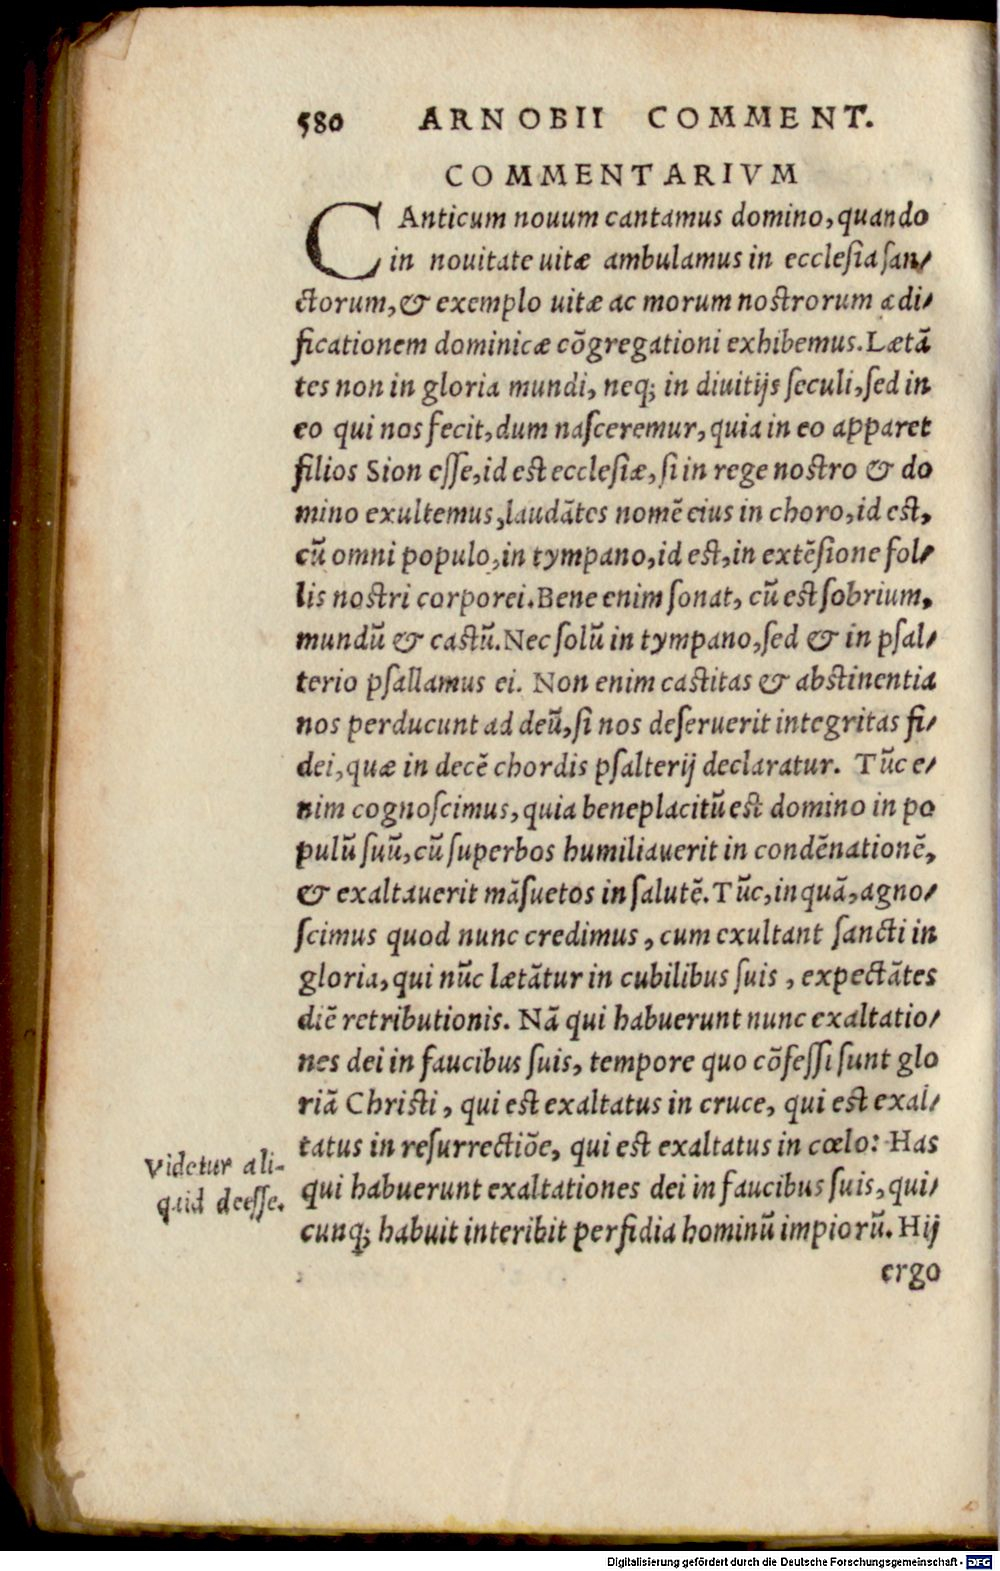 580 ARNOBII COMMENT.
COMMENTARIVM
CAnticum nouum cantamus domino, quando
in nouitate uitæ ambulamus in ecclesia san/
ctorum, & exemplo uitæ ac morum nostrorum ædi/
ficationem dominicæ cõgregationi exhibemus. Lætã
tes non in gloria mundi, neq; in diuitijs seculi, sed in
eo qui nos fecit, dum nasceremur, quia in eo apparet
filios Sion esse, id est ecclesiæ, si in rege nostro & do
mino exultemus, laudãtes nomẽ eius in choro, id est,
cũ omni populo, in tympano, id est, in extẽsione fol/
lis nostri corporei. Bene enim sonat, cũ est sobrium,
mundũ & castũ. Nec solũ in tympano, sed & in psal/
terio psallamus ei. Non enim castitas & abstinentia
nos perducunt ad deũ, si nos deseruerit integritas fi/
dei, quæ in decẽ chordis psalterij declaratur. Tũc e/
nim cognoscimus, quia beneplacitũ est domino in po
pulũ suũ, cũ superbos humiliauerit in condẽnationẽ,
& exaltauerit mãsuetos in salutẽ. Tũc, inquã, agno/
scimus quod nunc credimus, cum exultant sancti in
gloria, qui nũc lætãtur in cubilibus suis, expectãtes
diẽ retributionis. Nã qui habuerunt nunc exaltatio/
nes dei in faucibus suis, tempore quo cõfessi sunt glo
riã Christi, qui est exaltatus in cruce, qui est exal/
tatus in resurrectiõe, qui est exaltatus in cœlo: Has
qui habuerunt exaltationes dei in faucibus suis, qui/
cunq; habuit interibit perfidia hominũ impiorũ. Hij
ergo
Videtur ali-
quid deesse.
Digitalisierung gefördert durch die Deutsche Forschungsgemeinschaft - DFG